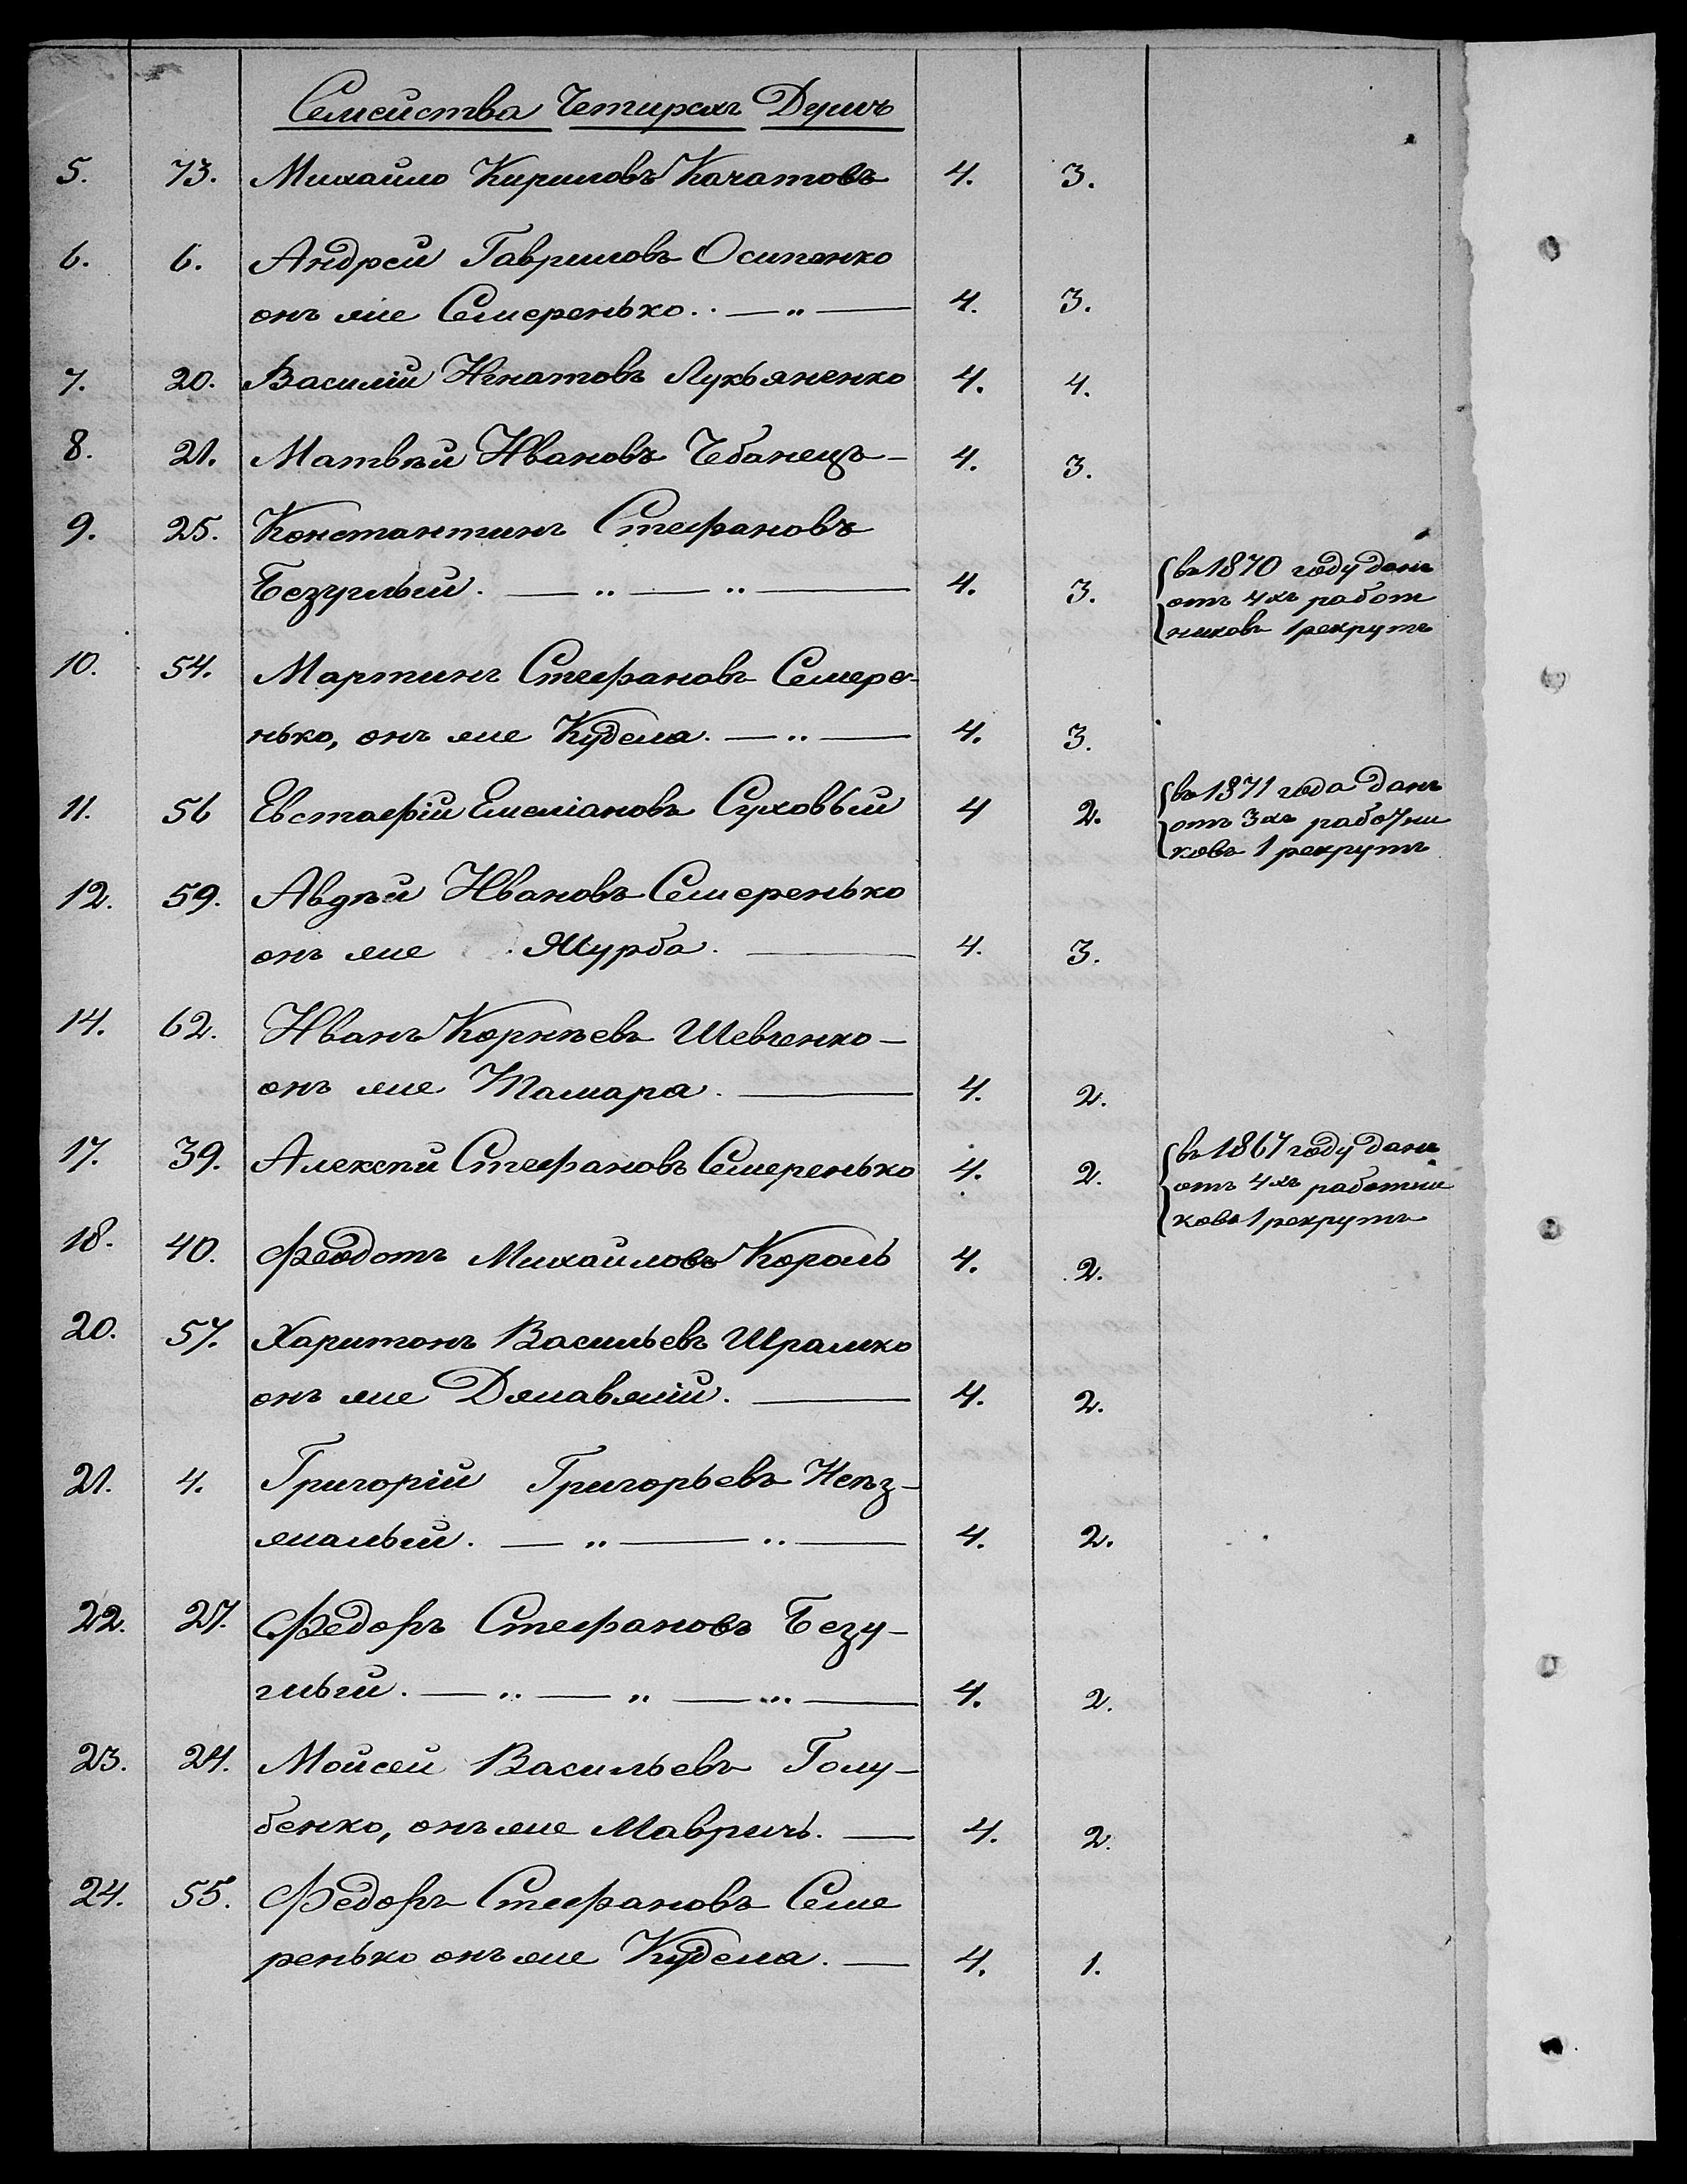 Семейства Четирехъ Душъ
5. 73. Михайло Кириловъ Качатовъ 4. 3.
6. 6. Андрей Гавриловъ Осипенко
онъ же Семеренько. 4. 3.
7. 20. Василій Игнатовъ Лукьяненко 4. 4.
8. 21. Матвѣй Ивановъ Чебанецъ 4. 3.
9. 25. Константинъ Стефановъ
Безуглый. 4. 3.
{въ 1870 году данъ
отъ 4хъ работ
никовъ 1 рекрутъ
10. 54. Мартинъ Стефановъ Семере-
нько, онъ же Кудела. 4. 3.
11. 56 Евстафій Емеліановъ Суховый 4 2.
{въ 1871 года данъ
отъ 3хъ работни
ковъ 1 рекрутъ
12. 59. Авдѣй Ивановъ Семеренько
онъ же Журба. 4. 3.
14. 62. Иванъ Корнѣевъ Шевченко
онъ же Тамара. 4. 2.
17. 39. Алексѣй Стефановъ Семеренько 4. 2.
{въ 1867 году данъ
отъ 4хъ работни
ковъ 1 рекрутъ
18. 40. Феодотъ Михайловъ Король 4. 2.
20. 57. Харитонъ Васильевъ Шрамко
онъ же 4. 2.
21. 4. Григорій Григорьевъ Неѣз-
жалый. 4. 2.
22. 27. Федоръ Стефановъ Безу-
глый. 4. 2.
23. 24. Мойсей Васильевъ Голу-
бенко, онъ же Мавричъ. 4. 2.
24. 55. Федоръ Стефановъ Семе
ренько онъ же Кудела. 4. 1.